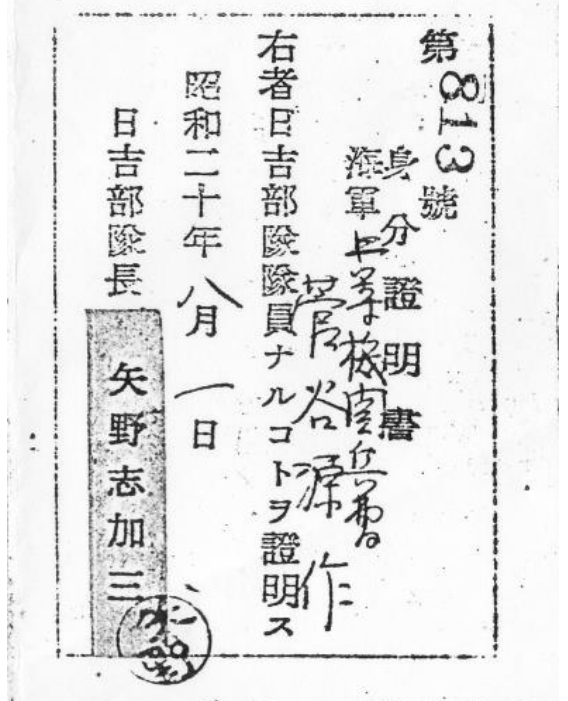 第813號
身分證明書
海軍上等機関兵曹
菅谷源作
右者日吉部隊隊員ナルコトヲ證明ス
昭和二十年八月一日
日吉部隊長 矢野志加三